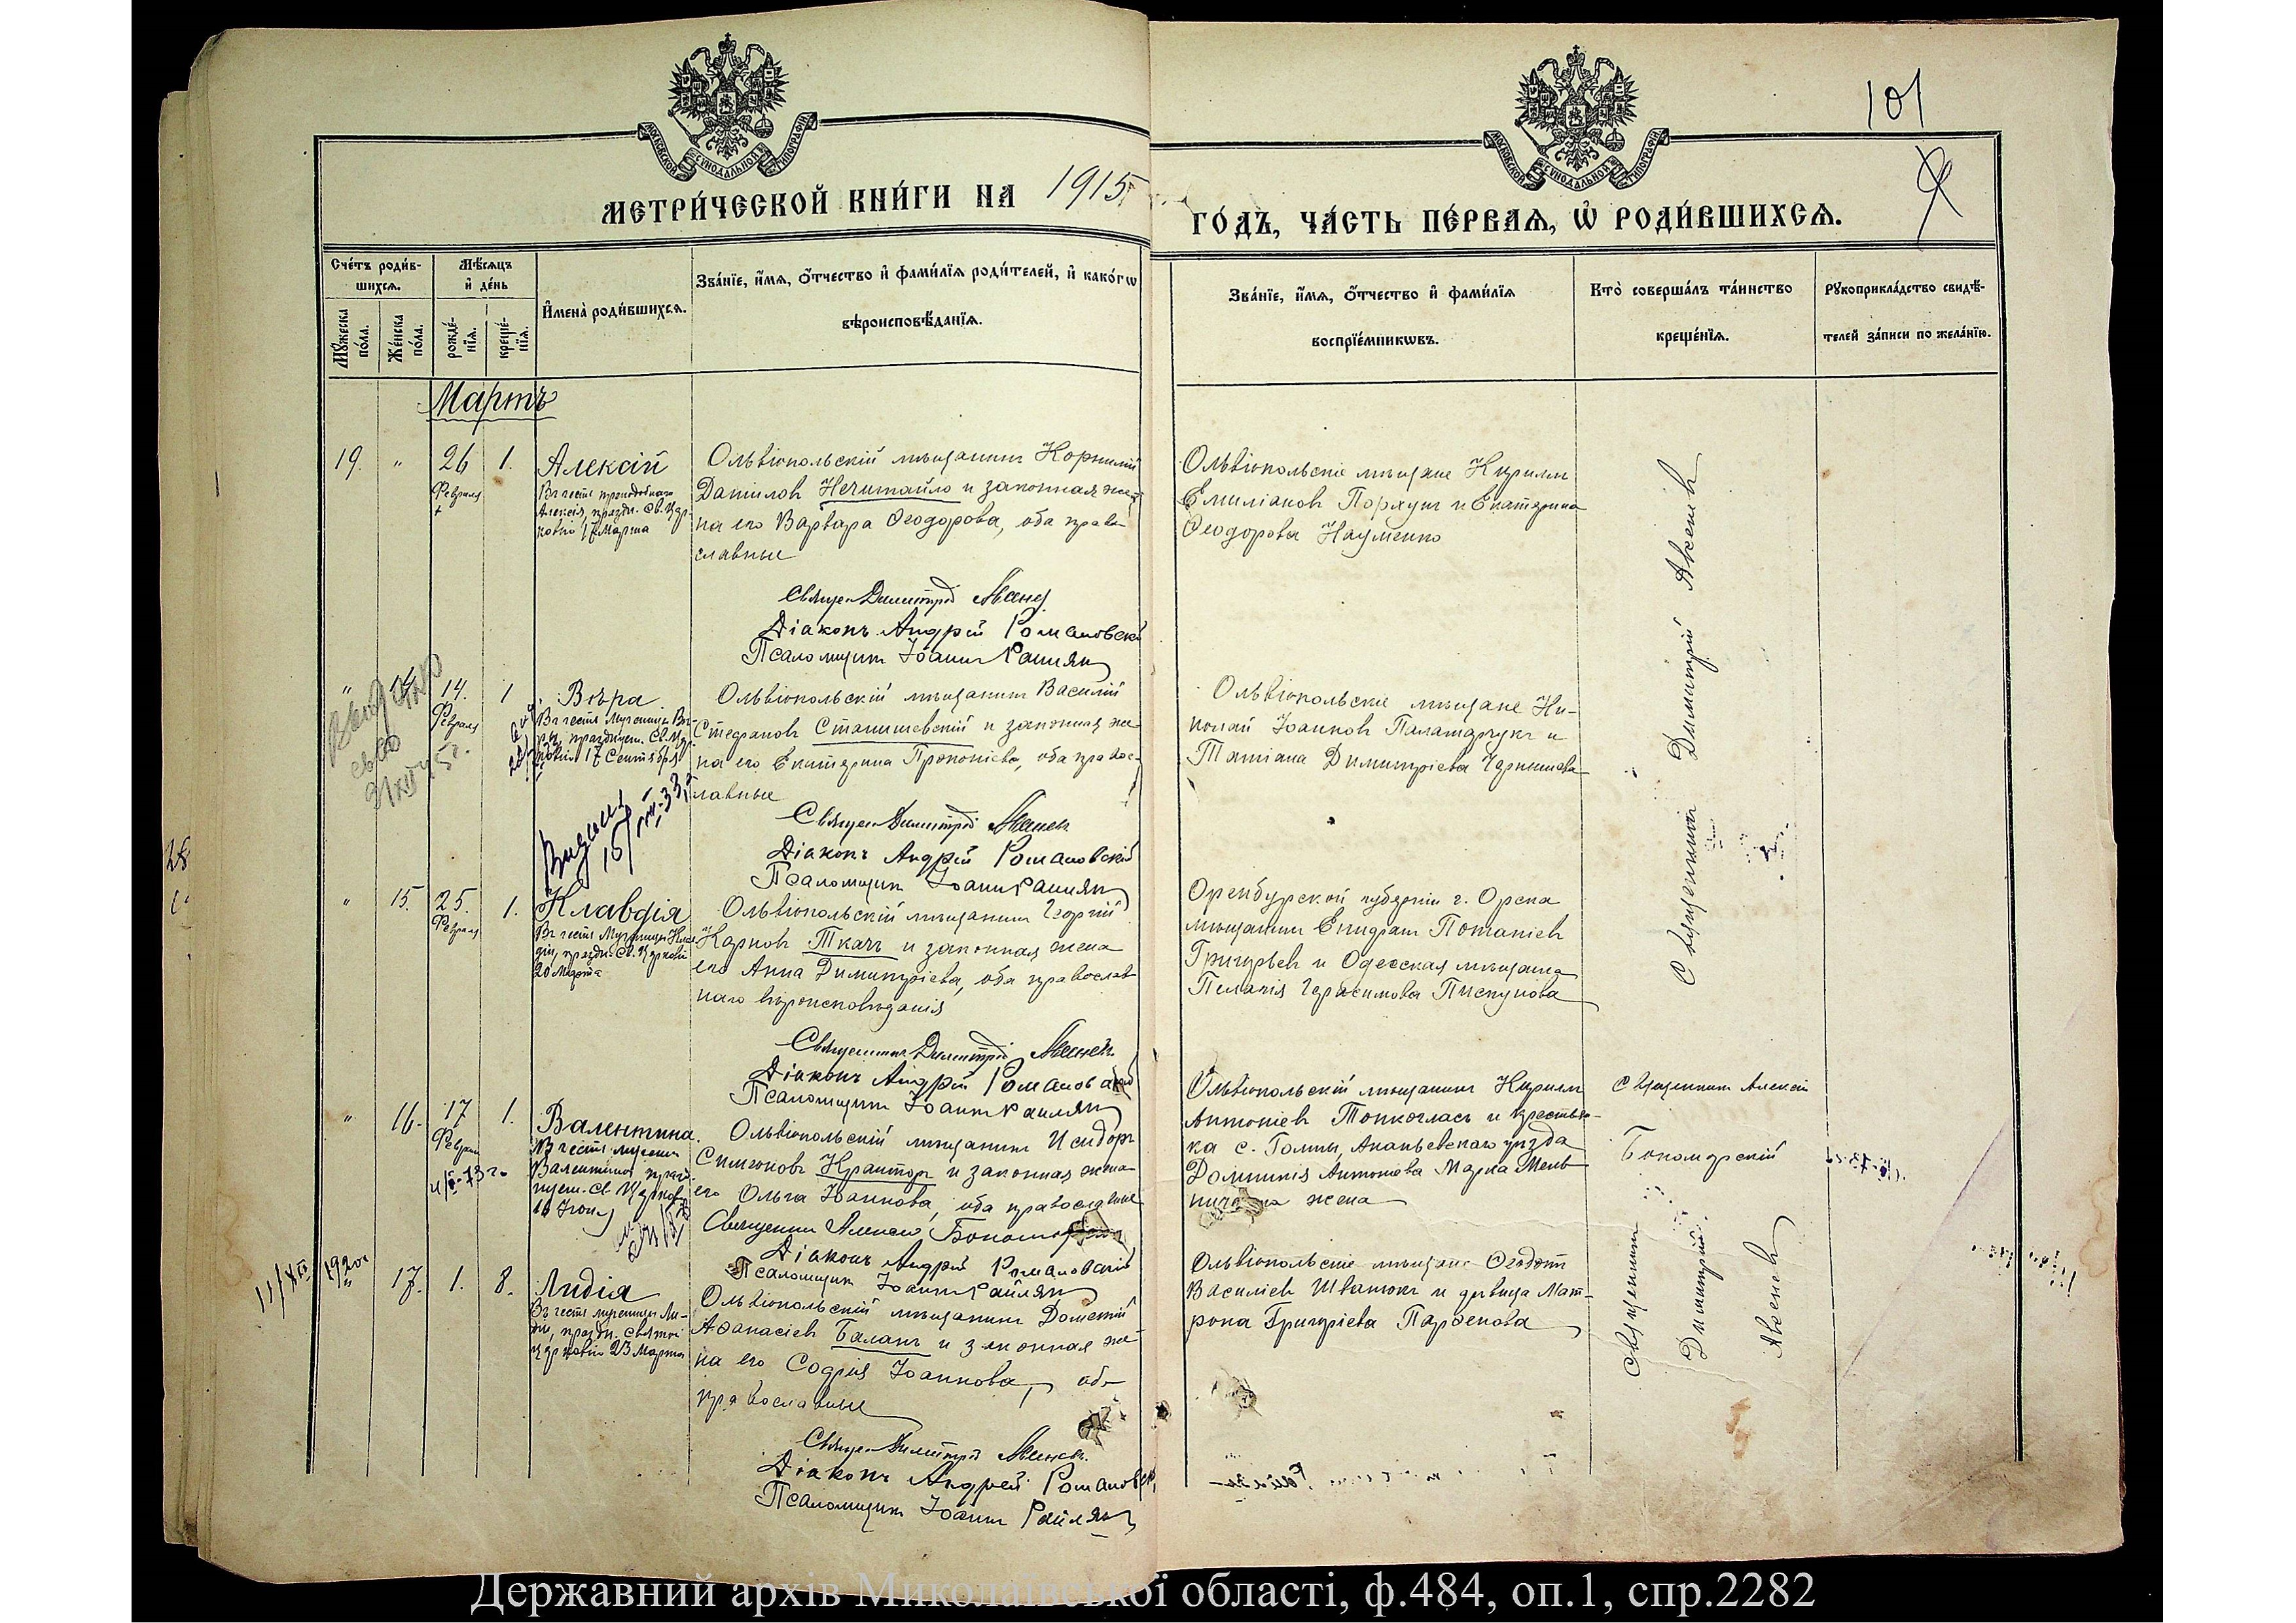 101
МЕТРИ́ЧЕСКОЙ КНИ́ГИ НА 1915
ГО́ДЪ, ЧА́СТЬ ПЕ́РВАѦ, Ѡ҆ РОДИ́ВШИХСѦ.
Сче́тъ роди́в-
шихсѧ.
Мꙋ́жеска
по́ла.
Же́нска
по́ла.
Мѣ́сѧцъ
и҆ де́нь
рожде́-
нїѧ.
креще́-
нїѧ.
И҆мена̀ роди́вшихсѧ.
Зва́нїе, и҆́мѧ, ѻ҆́тчество и҆ фами́лїѧ роди́телей, и҆ како́гѡ
вѣроисповѣ́данїѧ.
Зва́нїе, и҆́мѧ, ѻ҆́тчество и҆ фами́лїѧ
воспрїе́мникѡвъ.
Кто̀ соверша́лъ та́инство
креще́нїѧ.
Рꙋкоприкла́дство свидѣ́-
телей за́писи по жела́нїю.
Мартъ
19. " 26 Февраля 1.
Алексій
Въ честь преподобнаго
Алексія, праздн. Св. Цер-
ковію 17 Марта
Ольвіопольскій мѣщанинъ Корнилій
Даниловъ Нечитайло и законная же-
на его Варвара Ѳеодорова, оба право-
славные
Димитрій
Діаконъ Андрей Романовскій
Псаломщикъ Іоаннъ
Ольвіопольскіе мѣщане Кириллъ
Емиліановъ и Екатерина
Ѳеодорова Науменко
Священникъ Димитрій
" 14. 14. Февраля 1
Вѣра
Въ честь Мученицы Вѣ-
ры, празднуем. Св. Цер-
ковію 17 Сентября
Ольвіопольскій мѣщанинъ Василій
Стефановъ Станишевскій и законная же-
на его Екатерина Прокопіева, оба правос-
лавные
Димитрій
Діаконъ Андрей Романовскій
Псаломщикъ Іоаннъ
Ольвіопольскіе мѣщане Ни-
колай Іоанновъ Паламарчукъ и
Татіана Димитріева
" 15. 25. Февраля 1.
Клавдія
Въ честь Мученицы Клав-
діи, праздн. Св. Церковію
20 Марта
Ольвіопольскій мѣщанинъ Георгій
Карповъ Ткачъ и законная жена
его Анна Димитріева, оба православ-
наго вѣроисповѣданія
Священникъ Димитрій
Діаконъ Андрей Романовскій
Псаломщикъ Іоаннъ
Оренбургской губерніи г. Орска
мѣщанинъ Потапіевъ
Григорьевъ и Одесская мѣщанка
Пелагія Герасимова Пискунова
" 16. 17 Февраля 1.
Валентина
Въ честь мучениц.
Валентины, празд-
нуем. Св. Церковію
Ольвіопольскій мѣщанинъ Исидоръ
Симеоновъ и законная жена
его Ольга Іоаннова, оба православные
Священникъ Алексій
Діаконъ Андрей Романовскій
Псаломщикъ Іоаннъ
Ольвіопольскій мѣщанинъ Кириллъ
Антоніевъ и крестьян-
ка с. Гольмы, Ананьевскаго уѣзда
Домникія Антонова Марка Мель-
жена
Священникъ Алексій
17. 1. 8.
Лидія
Въ честь мученицы Ли-
діи, праздн. Святой
церковію 23 Марта
Ольвіопольскій мѣщанинъ Дометій
Аѳанасіевъ Баланъ и законная же-
на его Софія Іоаннова, оба
православные
Димитрій
Діаконъ Андрей Романовск
Псаломщикъ Іоаннъ
Ольвіопольскіе мѣщане Ѳеодотъ
Василіевъ и дѣвица Мат-
рона Григоріева Парѳенова
Священникъ
Димитрій
Державний архів Миколаївської області, ф.484, оп.1, спр.2282